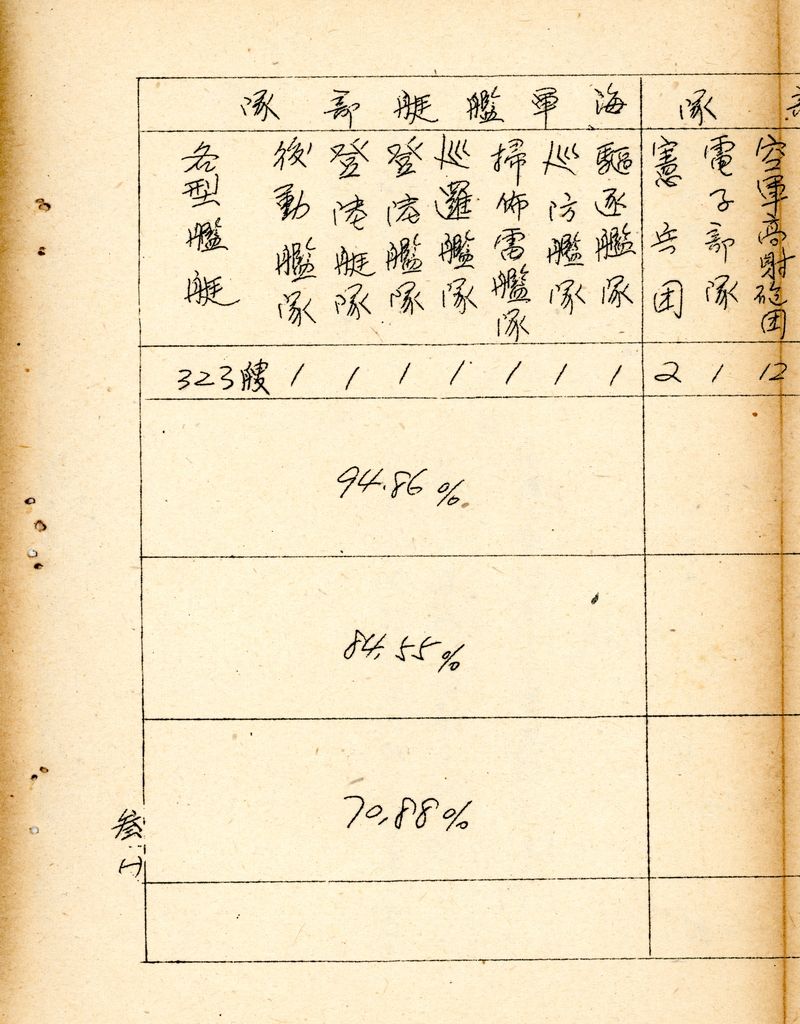 部隊
海軍艦艇部隊
空軍高射砲团
電子部隊
憲兵团
驅逐艦隊
巡防艦隊
掃佈雷艦隊
巡邏艦隊
登陸艦隊
登陸艇隊
後勤艦隊
各型艦艇
12
1
2
1
1
1
1
1
1
1
323艘
94.86%
84.55%
70.88%
叁
(一)